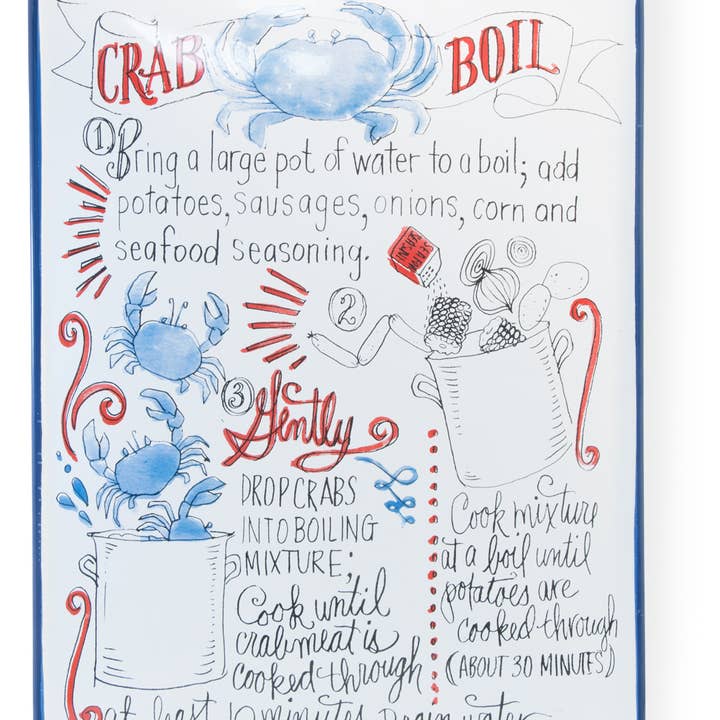 CRAB BOIL
1 Bring a large pot of water to a boil; add
potatoes, sausages, onions, corn and
seafood seasoning.
SEAFOOD
SEASONING
2
Cook mixture
at a boil until
potatoes are
cooked through
(ABOUT 30 MINUTES)
3 Gently
DROP CRABS
INTO BOILING
MIXTURE;
Cook until
crabmeat is
cooked through
at least 10 minutes. Drain water